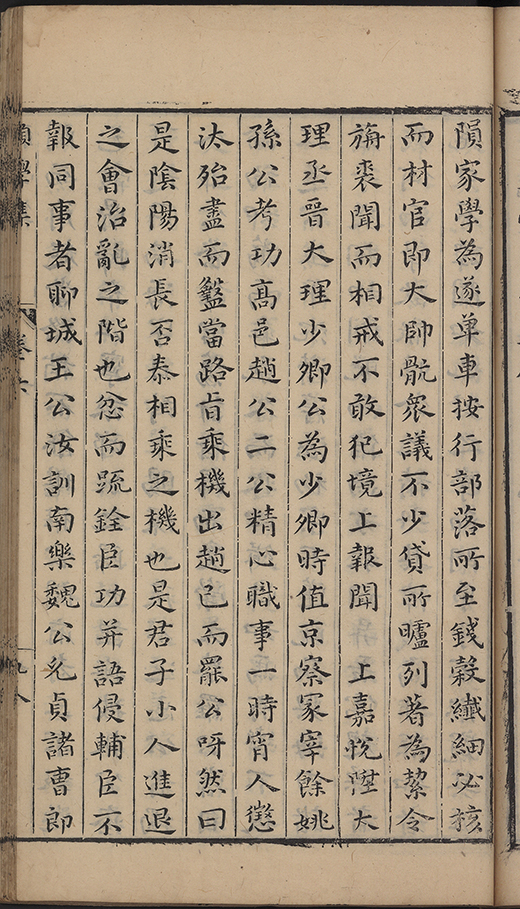 隕家學為遂单車按行部落所至錢榖纖細必核
而材官即大帥骫衆議不少貸所臚列著為挈令
旃裘聞而相戒不敢犯境上報聞　上嘉悅陞太
理丞晋大理少卿公為少卿時值京察冢宰餘姚
孫公考功髙邑趙公二公精心職事一時宵人懲
汰殆盡而盭當路㫖乘機出趙已而罷公呀然曰
是陰陽消長否泰相乘之機也是君子小人進退
之會治亂之階也忿而疏銓臣功并語侵輔臣不
報同事者聊城王公汝訓南樂魏公允貞諸曹郎
學集
卷六